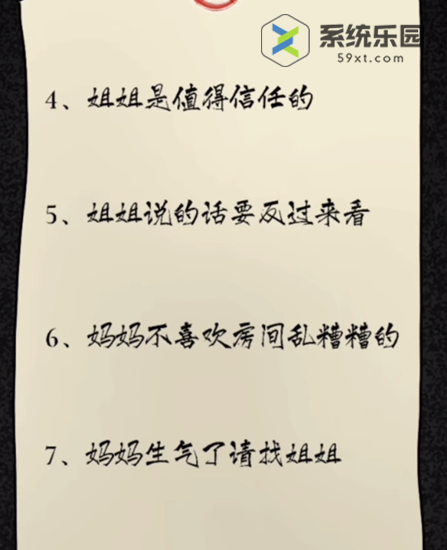 系统乐园
59xt.com
4、姐姐是值得信任的
5、姐姐说的话要反过来看
6、妈妈不喜欢房间乱糟糟的
7、妈妈生气了请找姐姐